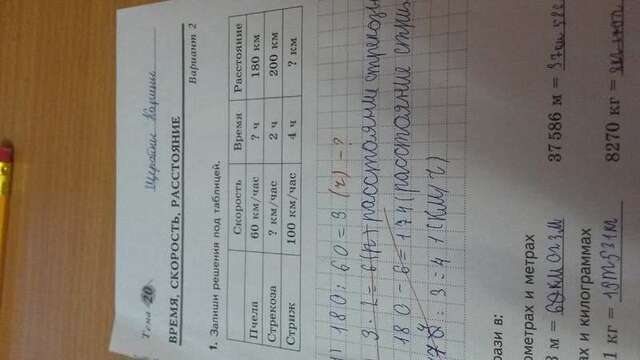 Тема 20
ВРЕМЯ, СКОРОСТЬ, РАССТОЯНИЕ
Вариант 2
1. Запиши решения под таблицей.
Скорость Время Расстояние
Пчела 60 км/час ? ч 180 км
Стрекоза ? км/час 2 ч 200 км
Стриж 100 км/час 4 ч ? км
180 : 60 = 3 (ч) - ?
3 · 2 = 6 (ч) расстояние стрекозы
180 - 6 = 174 (расстояние стрижа
: 3 = 4 1 (км/ч)
рази в:
ометрах и метрах
37 586 м =
ах и килограммах
1 кг =
8270 кг =